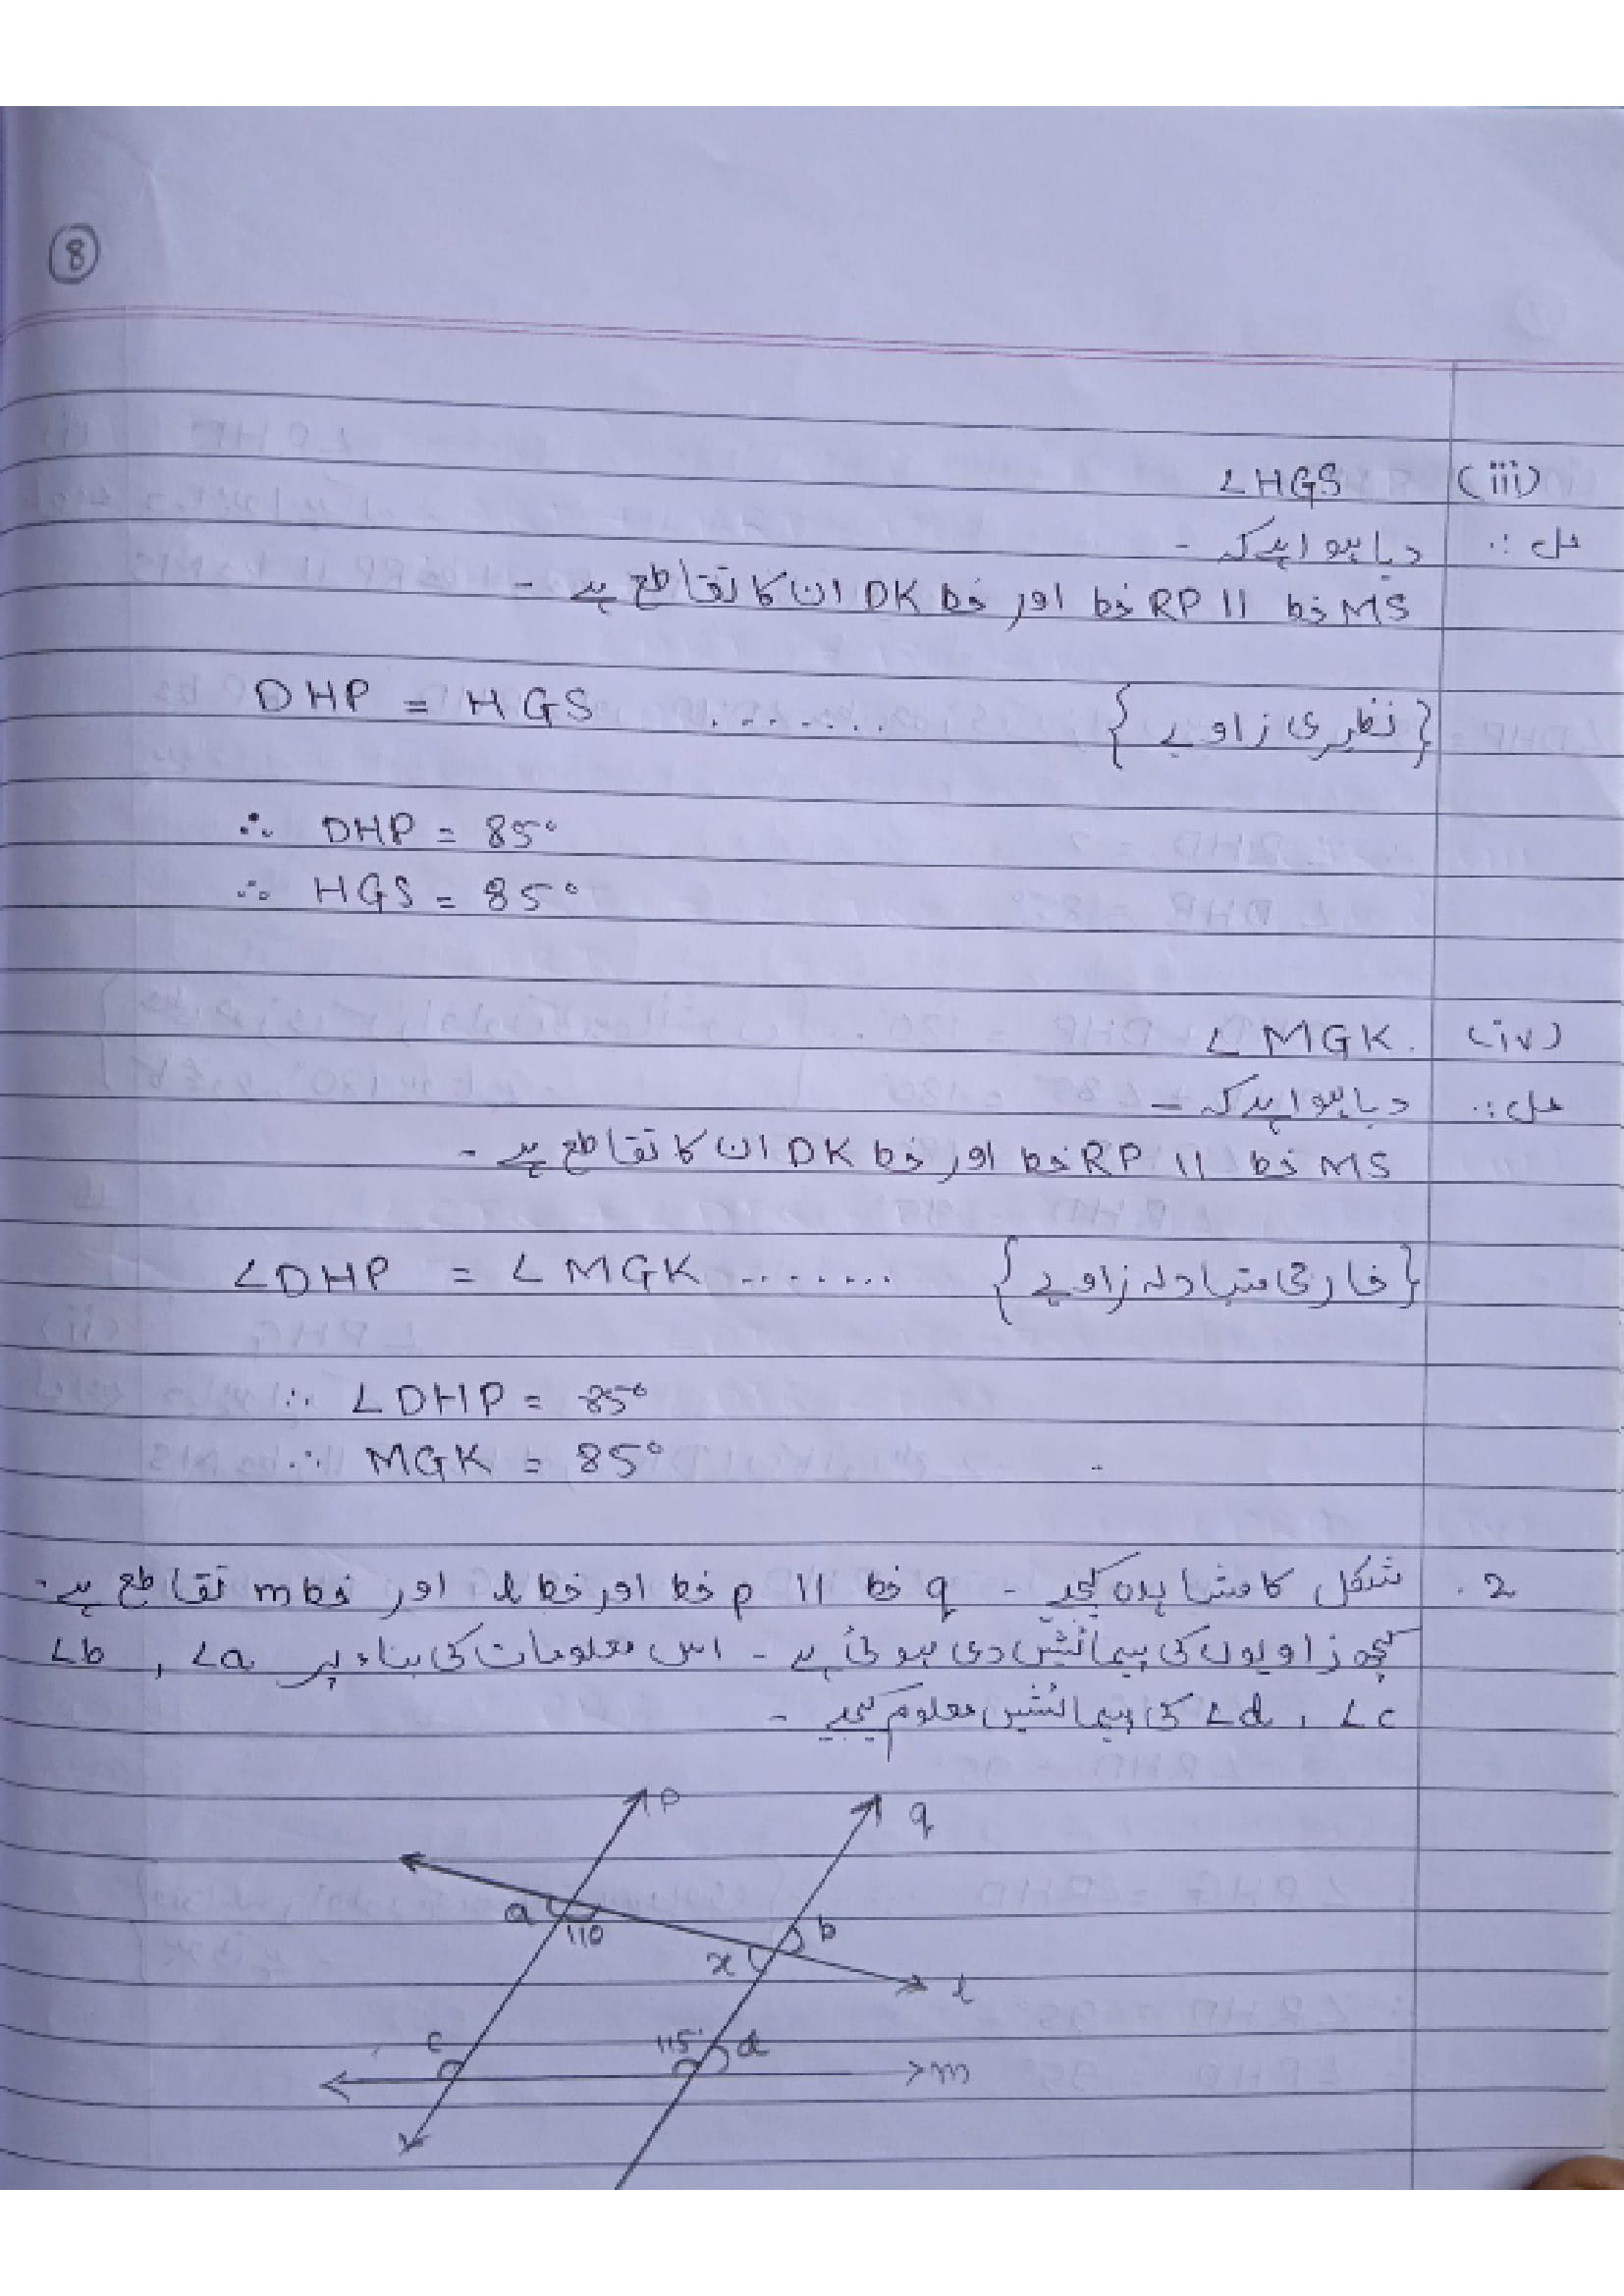 8
(iii) ∠HGS
حل :. دیا ہوا ہے کہ -
MS خط || RP خط اور خط DK ان کا تقاطع ہے -
DHP = HGS ........ {نظیری زاویے}
∴ DHP = 85°
∴ HGS = 85°
(iv) ∠MGK.
حل :. دیا ہوا ہے کہ -
MS خط || RP خط اور خط DK ان کا تقاطع ہے -
∠DHP = ∠MGK ........ {خارجی متبادلہ زاویے}
∴ ∠DHP = 85°
∴ MGK = 85°
2. شکل کا مشاہدہ کیجیے - q خط || p خط اور خط l اور خط m تقاطع ہے -
کچھ زاویوں کی پیمائشیں دی ہوئی ہے - اس معلومات کی بناء پر ∠a , ∠b
∠c , ∠d کی پیمائشیں معلوم کیجیے -
p
q
a
110
b
x
l
c
115°
d
m